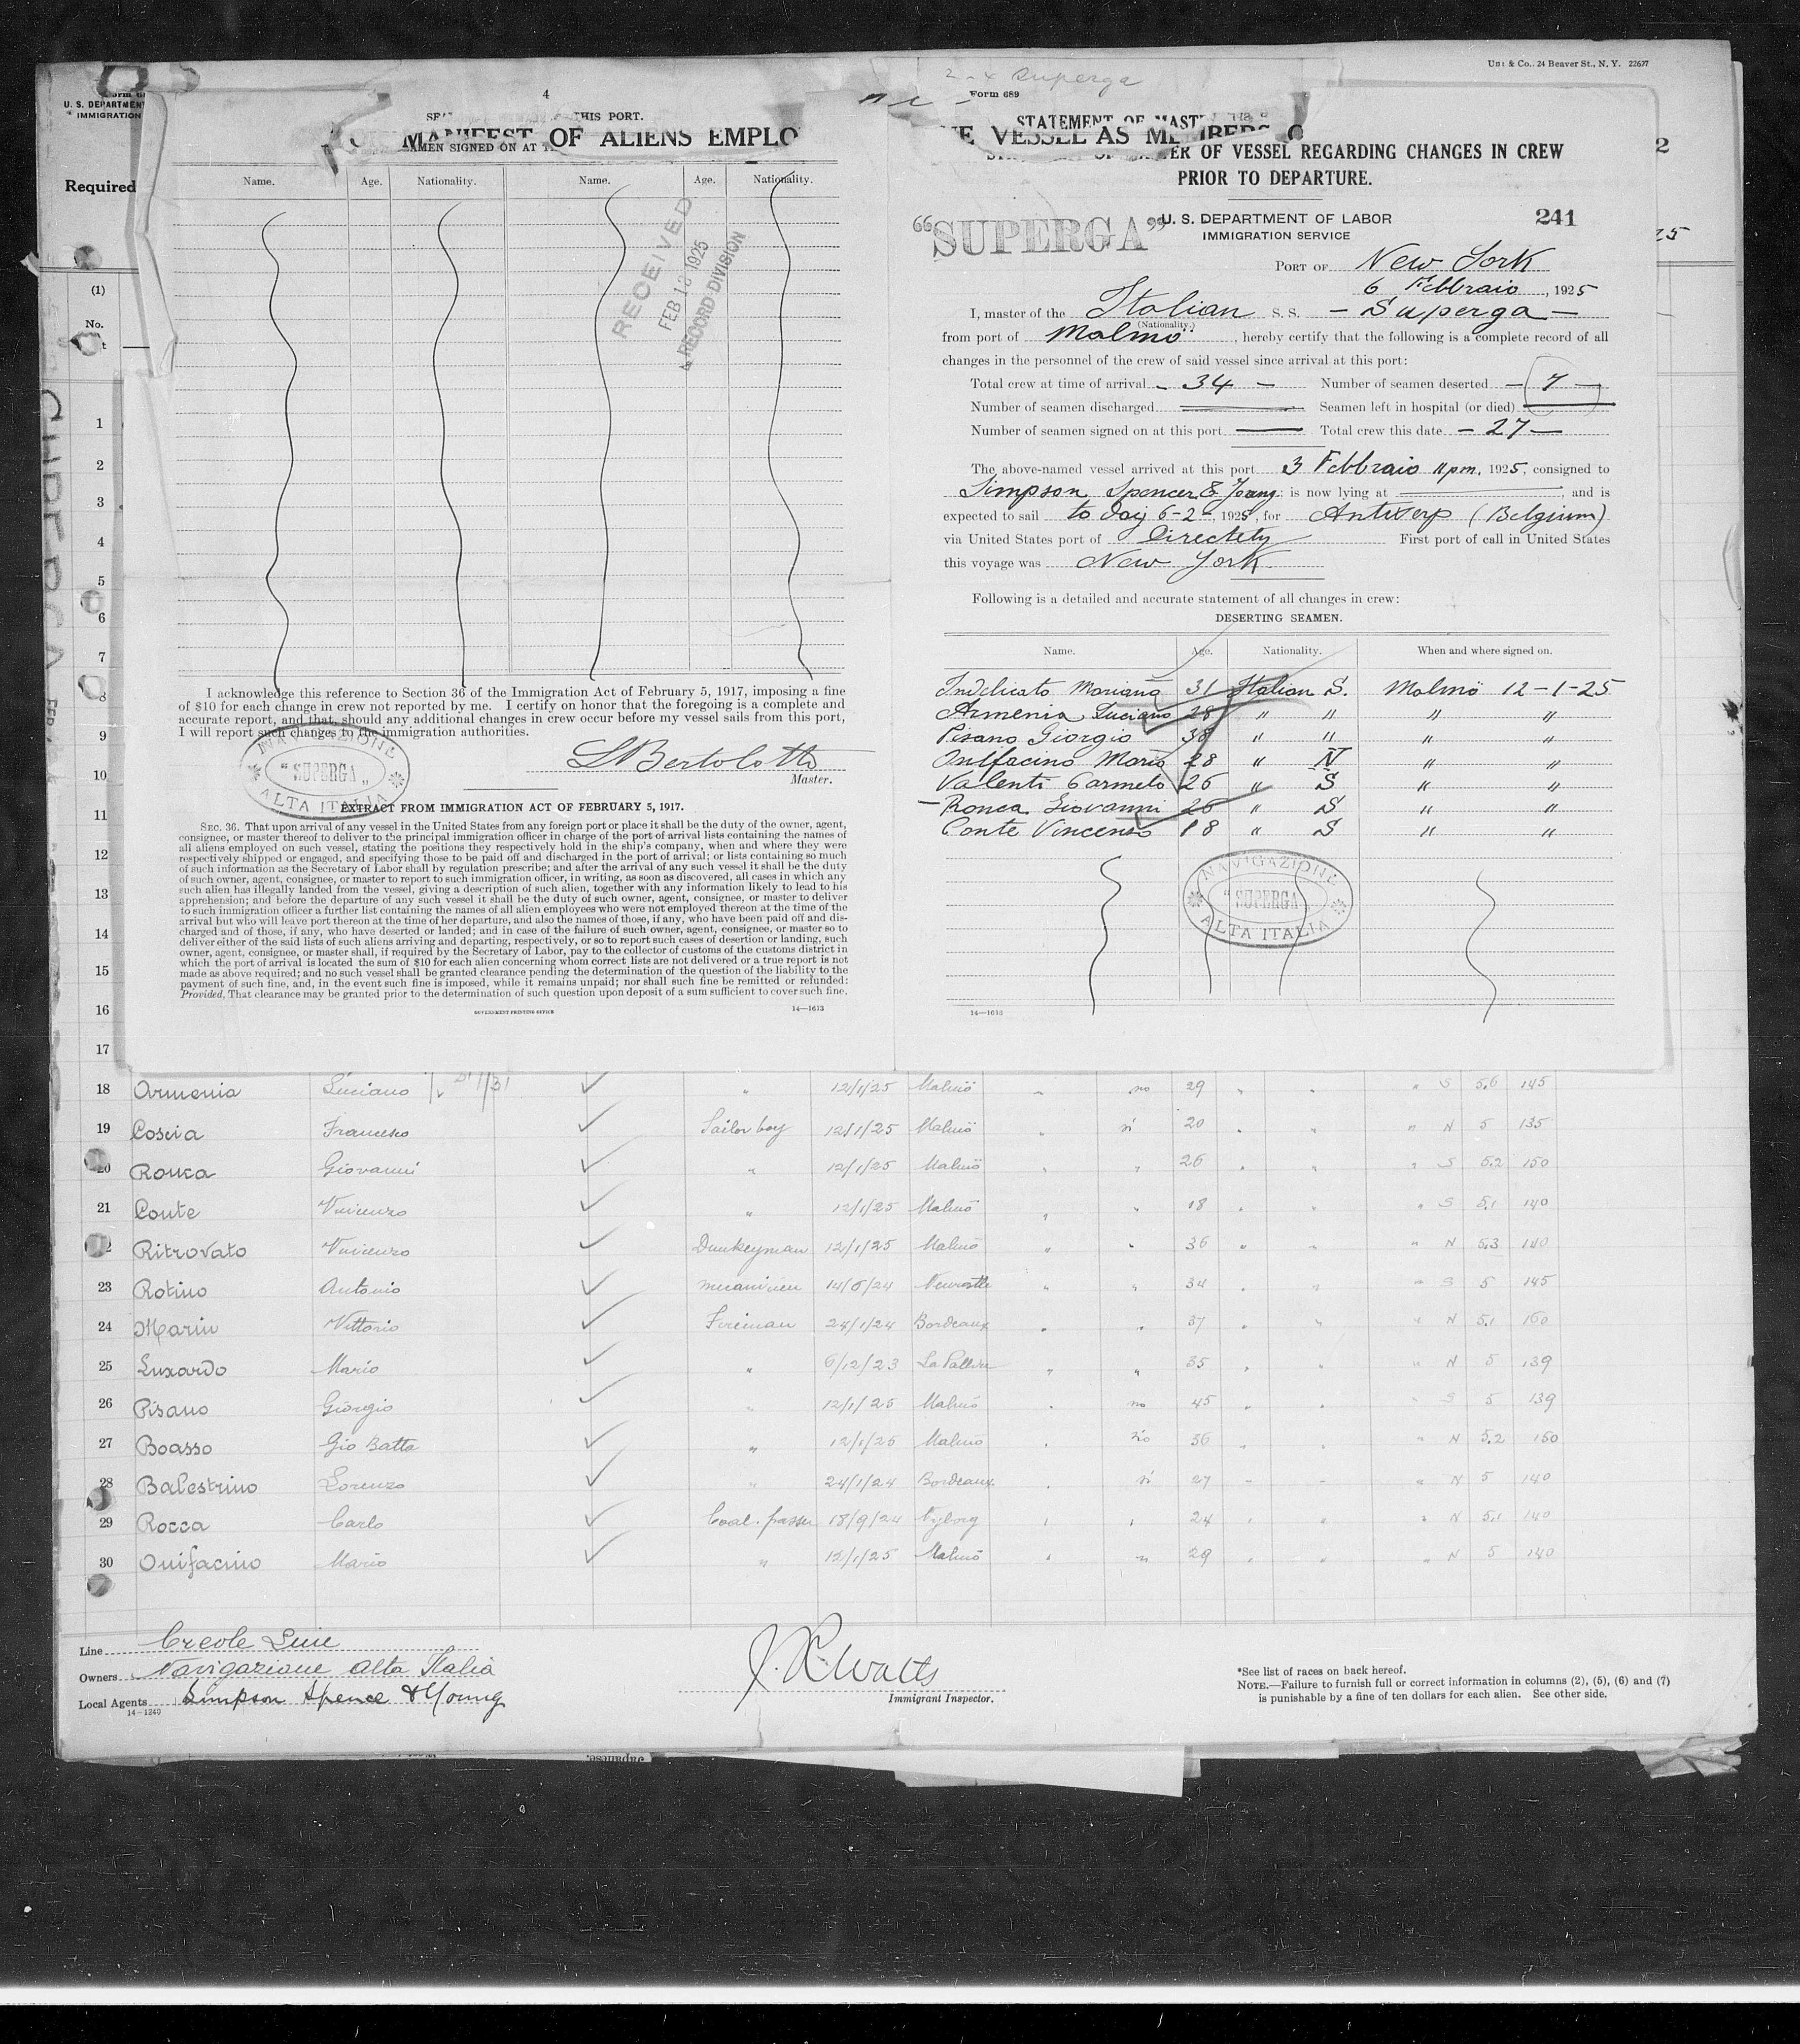 UNZ & Co., 24 Beaver St., N. Y. 22677
Superga
U. S. DEPARTMENT
IMMIGRATION
Required
(1)
No.
4
THIS PORT.
MANIFEST OF ALIENS EMPLO
SEAMEN SIGNED ON AT
Name. Age. Nationality. Name. Age. Nationality.
RECEIVED
FEB 1925
RECORD DIVISION
I acknowledge this reference to Section 36 of the Immigration Act of February 5, 1917, imposing a fine
of $10 for each change in crew not reported by me. I certify on honor that the foregoing is a complete and
accurate report, and that, should any additional changes in crew occur before my vessel sails from this port,
I will report such changes to the immigration authorities.
Bertolotto
Master.
NAVIGAZIONE
"SUPERGA"
ALTA ITALIA
EXTRACT FROM IMMIGRATION ACT OF FEBRUARY 5, 1917.
SEC. 36. That upon arrival of any vessel in the United States from any foreign port or place it shall be the duty of the owner, agent,
consignee, or master thereof to deliver to the principal immigration officer in charge of the port of arrival lists containing the names of
all aliens employed on such vessel, stating the positions they respectively hold in the ship's company, when and where they were
respectively shipped or engaged, and specifying those to be paid off and discharged in the port of arrival; or lists containing so much
of such information as the Secretary of Labor shall by regulation prescribe; and after the arrival of any such vessel it shall be the duty
of such owner, agent, consignee, or master to report to such immigration officer, in writing, as soon as discovered, all cases in which any
such alien has illegally landed from the vessel, giving a description of such alien, together with any information likely to lead to his
apprehension; and before the departure of any such vessel it shall be the duty of such owner, agent, consignee, or master to deliver
to such immigration officer a further list containing the names of all alien employees who were not employed thereon at the time of the
arrival but who will leave port thereon at the time of her departure, and also the names of those, if any, who have been paid off and dis-
charged and of those, if any, who have deserted or landed; and in case of the failure of such owner, agent, consignee, or master so to
deliver either of the said lists of such aliens arriving and departing, respectively, or so to report such cases of desertion or landing, such
owner, agent, consignee, or master shall, if required by the Secretary of Labor, pay to the collector of customs of the customs district in
which the port of arrival is located the sum of $10 for each alien concerning whom correct lists are not delivered or a true report is not
made as above required; and no such vessel shall be granted clearance pending the determination of the question of the liability to the
payment of such fine, and, in the event such fine is imposed, while it remains unpaid; nor shall such fine be remitted or refunded:
Provided, That clearance may be granted prior to the determination of such question upon deposit of a sum sufficient to cover such fine.
GOVERNMENT PRINTING OFFICE 14—1613
Form 689
STATEMENT OF MAST
VESSEL AS MEMBERS O
ER OF VESSEL REGARDING CHANGES IN CREW
PRIOR TO DEPARTURE.
"SUPERGA"
U. S. DEPARTMENT OF LABOR
IMMIGRATION SERVICE
241
PORT OF New York
6 Febbraio, 1925
I, master of the Italian S. S. - Superga -
(Nationality.)
from port of Malmö, hereby certify that the following is a complete record of all
changes in the personnel of the crew of said vessel since arrival at this port:
Total crew at time of arrival - 34 - Number of seamen deserted - 7 -
Number of seamen discharged Seamen left in hospital (or died)
Number of seamen signed on at this port Total crew this date - 27 -
The above-named vessel arrived at this port 3 Febbraio 11 pm, 1925, consigned to
Simpson Spencer & Young; is now lying at , and is
expected to sail to day 6-2-, 1925, for Antwerp (Belgium)
via United States port of Directely First port of call in United States
this voyage was New York
Following is a detailed and accurate statement of all changes in crew:
DESERTING SEAMEN.
Name. Age. Nationality. When and where signed on.
Indelicato Mariano 31 Italian S. Malmö 12-1-25
Armenia Luciano 28 " " " "
Pisano Giorgio 38 " " " "
Onifacino Mario 28 " N " "
Valenti Carmelo 26 " S " "
- Ronca Giovanni 26 " S " "
Conte Vincenzo 18 " S " "
NAVIGAZIONE
"SUPERGA"
ALTA ITALIA
14—1613
1
2
3
4
5
6
7
8
9
10
11
12
13
14
15
16
17
18 Armenia Luciano " 12/1/25 Malmö " no 29 " " " S 5.6 145
19 Coscia Francesco Sailor boy 12/1/25 Malmö " si 20 " " " N 5 135
20 Ronca Giovanni " 12/1/25 Malmö " " 26 " " " S 5.2 150
21 Conte Vincenzo " 12/1/25 Malmö " " 18 " " " S 5.1 140
22 Ritrovato Vincenzo Dunkeyman 12/1/25 Malmö " " 36 " " " N 5.3 140
23 Rotino Antonio 24 Newcastle " " 34 " " " S 5 145
24 Marin Vittorio Fireman 24/1/24 Bordeaux " " 37 " " " N 5.1 160
25 Luxardo Mario " 6/12/23 La Pallice " " 35 " " " N 5 139
26 Pisano Giorgio " 12/1/25 Malmö " no 45 " " " S 5 139
27 Boasso Gio Batta " 12/1/25 Malmö " 36 " " " N 5.2 150
28 Balestrino Lorenzo " 24/1/24 Bordeaux " si 27 " " " N 5 140
29 Rocca Carlo Coal. passer 18/9/24 Nyborg " " 24 " " " N 5.1 140
30 Onifacino Mario " 12/1/25 Malmö " " 29 " " " N 5 140
Line Creole Line
Owners Navigazione Alta Italia
Local Agents Simpson Spence & Young
14—1240
J. R. Watts
Immigrant Inspector.
*See list of races on back hereof.
NOTE.—Failure to furnish full or correct information in columns (2), (5), (6) and (7)
is punishable by a fine of ten dollars for each alien. See other side.
Japanese.